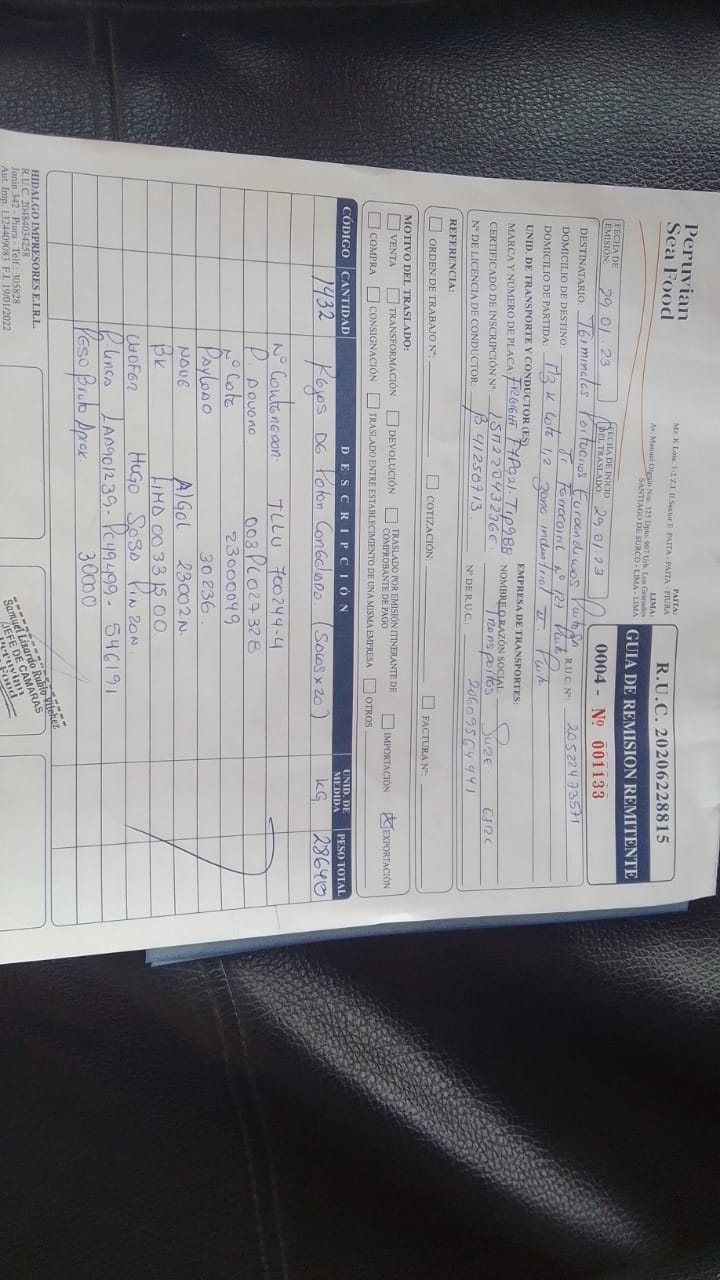 Peruvian
Sea Food
PAITA:
Mz. K Lote. 1-2 Z.I. II Sector E PAITA - PAITA - PIURA
LIMA:
Av. Manuel Olguin Nro. 325 Dpto. 907 Urb. Los Granados
SANTIAGO DE SURCO - LIMA - LIMA
R.U.C. 20206228815
GUIA DE REMISION REMITENTE
0004 - Nº 001133
FECHA DE EMISIÓN 29.01.23
FECHA DE INICIO DEL TRASLADO 29.01.23
DESTINATARIO: Terminales Portuarios Euroandinos Paita R.U.C. Nº: 20522473571
DOMICILIO DE DESTINO: Ferrocarril Nº 127 Paita
DOMICILIO DE PARTIDA: Mz K Lote 1,2 Zona industrial II Paita
UNID. DE TRANSPORTE Y CONDUCTOR (ES)
EMPRESA DE TRANSPORTES:
MARCA Y NUMERO DE PLACA:
NOMBRE O RAZON SOCIAL: Transportes
CERTIFICADO DE INSCRIPCIÓN Nº:
Nº DE LICENCIA DE CONDUCTOR: B41258713
Nº DE R.U.C. 20609564941
REFERENCIA:
ORDEN DE TRABAJO Nº:
COTIZACIÓN:
FACTURA Nº:
MOTIVO DEL TRASLADO:
VENTA TRANSFORMACIÓN DEVOLUCIÓN TRASLADO POR EMISIÓN ITINERANTE DE COMPROBANTE DE PAGO IMPORTACIÓN EXPORTACIÓN
COMPRA CONSIGNACIÓN TRASLADO ENTRE ESTABLECIMIENTO DE UNA MISMA EMPRESA OTROS
CÓDIGO CANTIDAD DESCRIPCIÓN UNID. DE MEDIDA PESO TOTAL
1432 de Poton Congelado (Sacos x 20) KG 28640
Nº Contenedor: TLLU 700244-4
003PL027328
Nº 23000049
Payload 30236
Nave Algol 23002N
BK LIMD00331500
Chofer Hugo Sosa Pinzon
- 546191
Peso Bruto Aprox. 30000
HIDALGO IMPRESORES E.I.R.L.
R.U.C. 20484034258
Junin 342 - Piura - Telf.: 305828
Aut. Imp. 1324409083 F.I. 19/01/2022
Samuel Lizardo Rufino Vilchez
JEFE DE CAMARAS